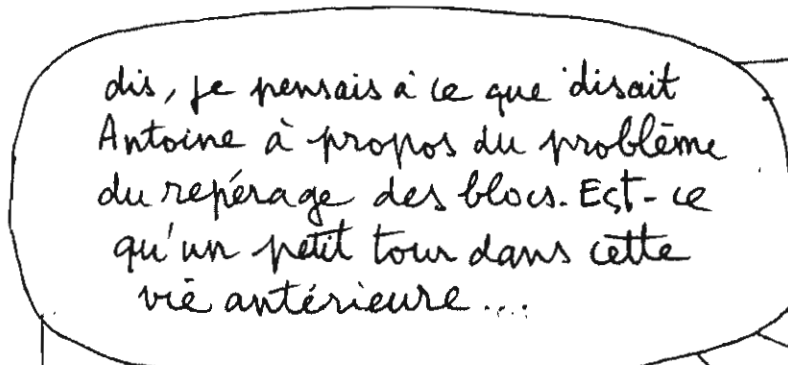 dis, je pensais à ce que disait
Antoine à propos du problème
du repérage des blocs. Est-ce
qu'un petit tour dans cette
vie antérieure...